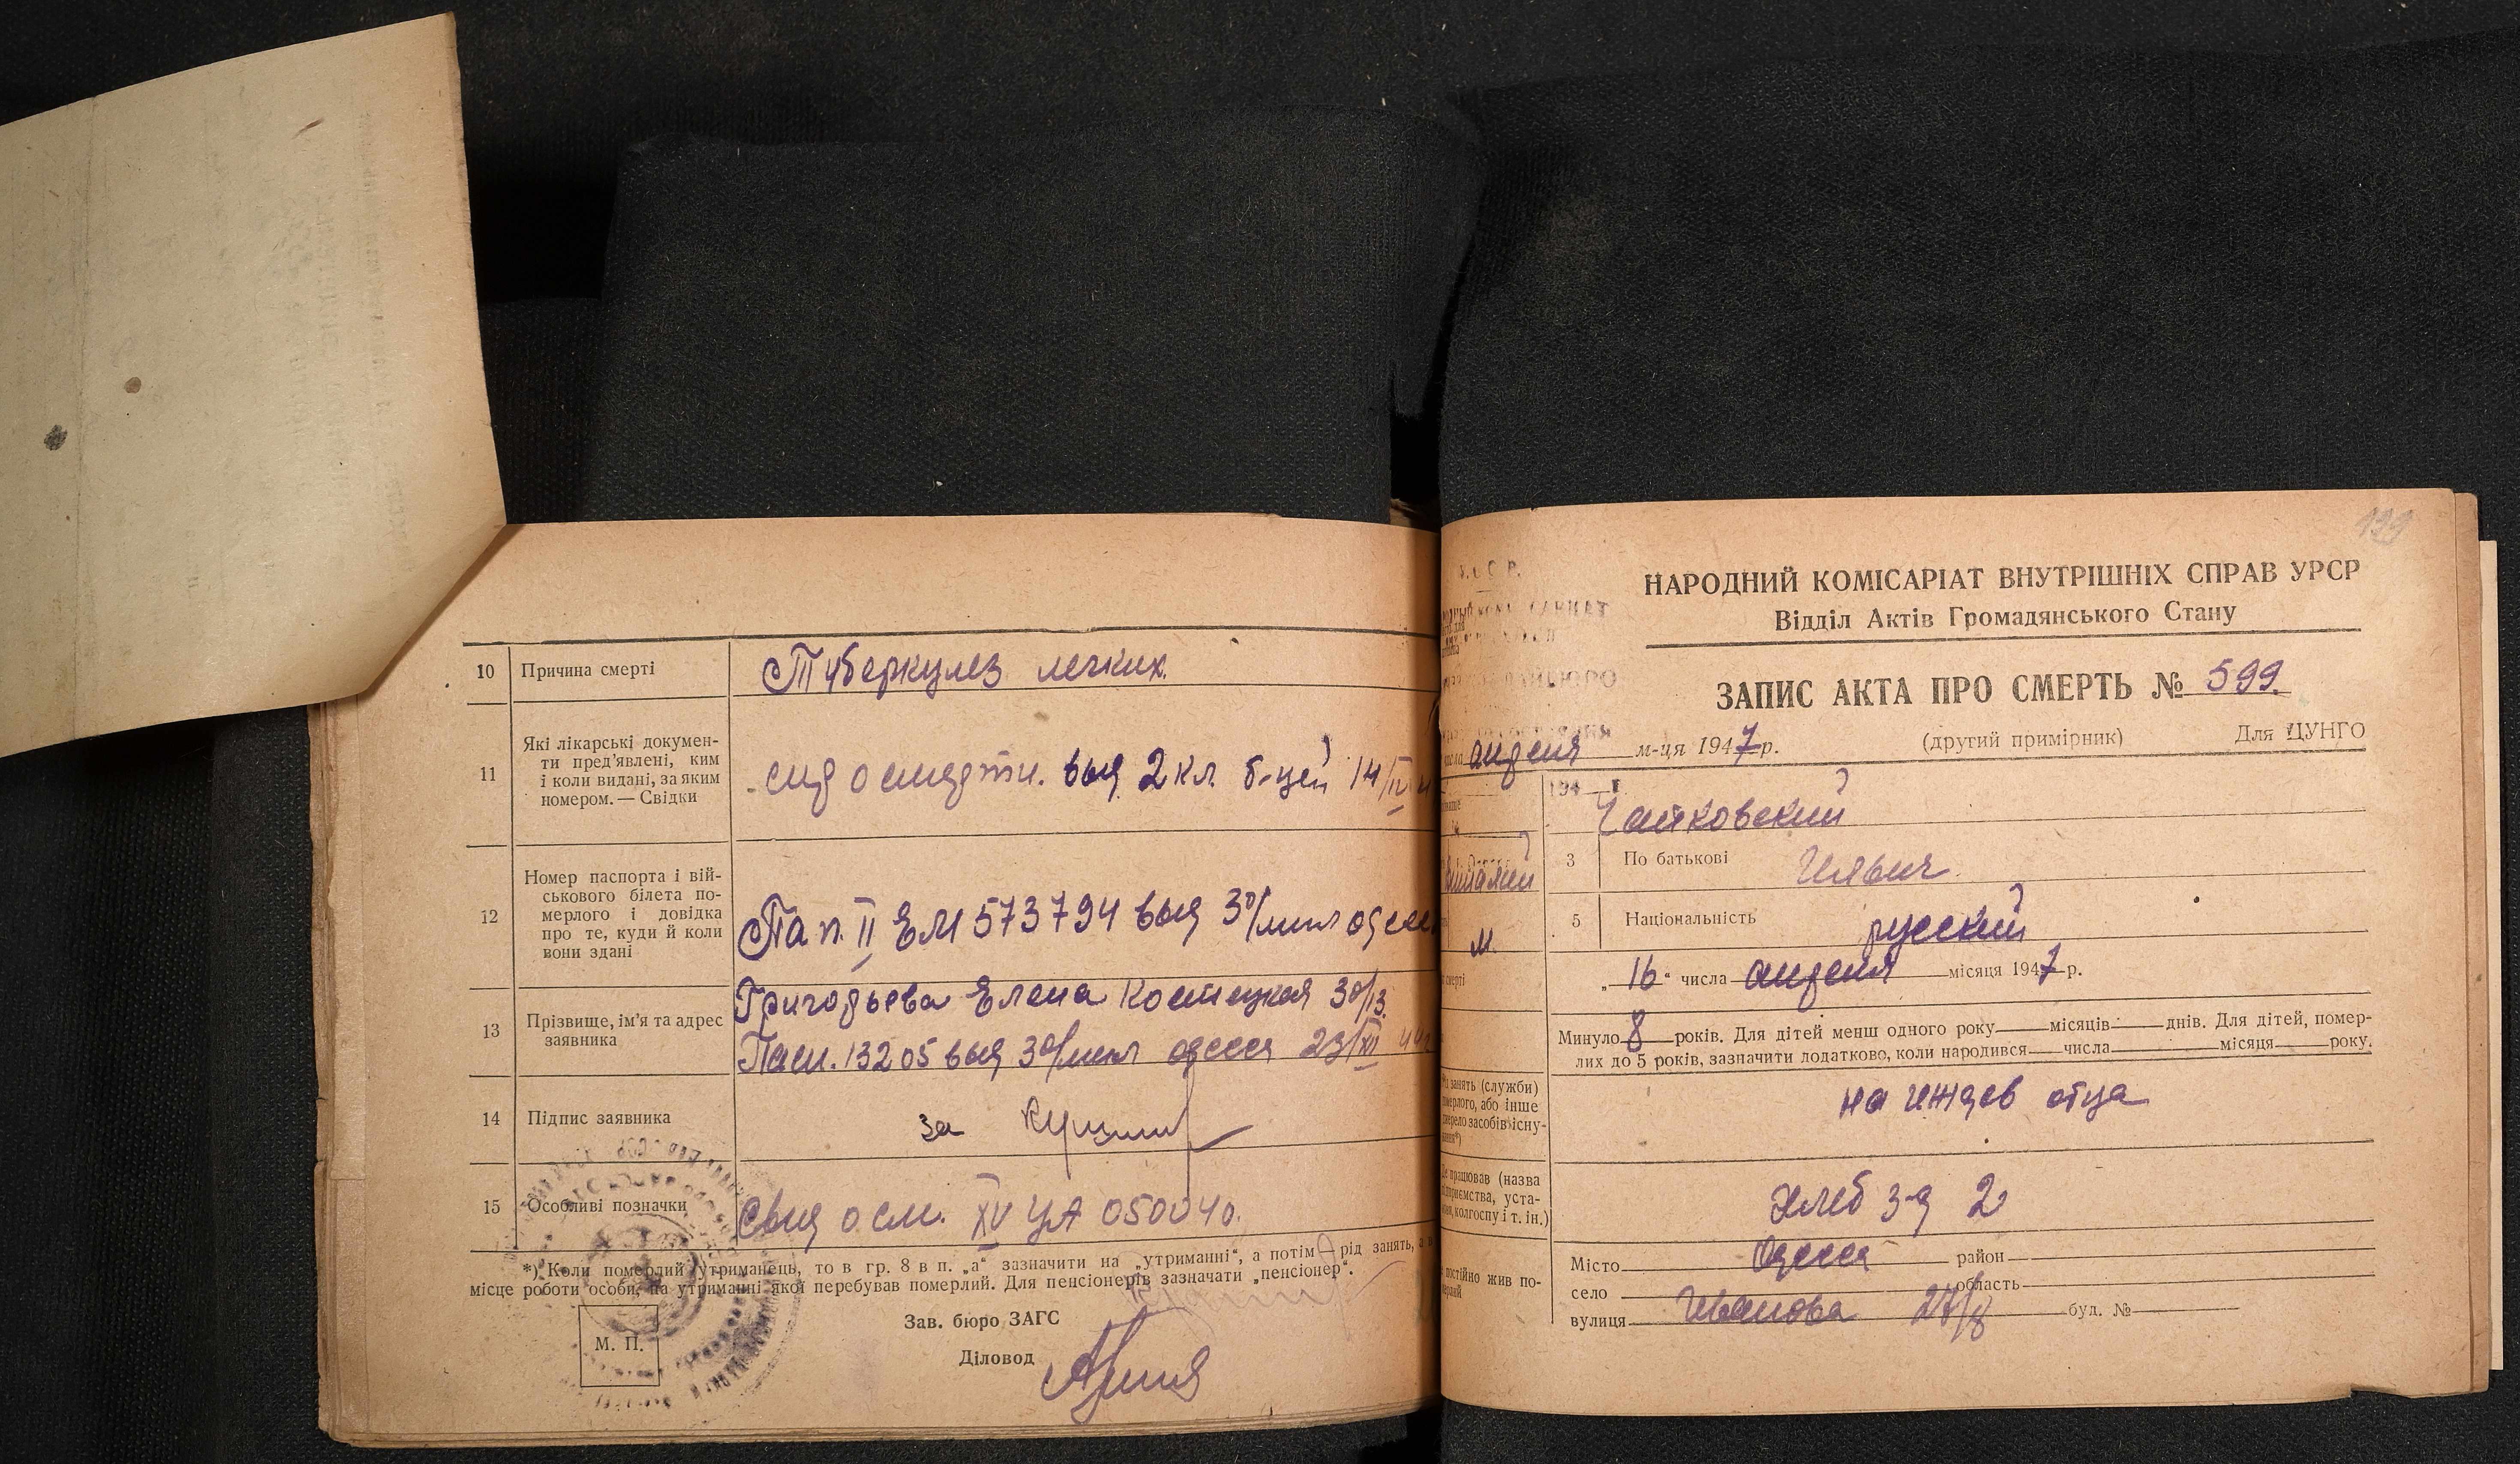 10 Причина смерті Туберкулез легких.
11 Які лікарські докумен-
ти пред'явлені, ким
і коли видані, за яким
номером. — Свідки
о смерти. выд 2 кл. б-цей 14/IV
12 Номер паспорта і вій-
ськового білета по-
мерлого і довідка
про те, куди й коли
вони здані
Пасп. II ЕМ 573794 выд 3 о/мил одесс
13 Прізвище, ім'я та адрес
заявника
Григорьева Елена Костецкая 30/13.
Пасп. 13205 выд 3 о/мил одесса 23/XI 44
14 Підпис заявника за
15 Особливі позначки Свид о см. XV УА 050040.
*) Коли померлий утриманець, то в гр. 8 в п. „а“ зазначити на „утриманні“, а потім рід занять, а
місце роботи особи, на утриманні якої перебував померлий. Для пенсіонерів зазначати „пенсіонер“.
Зав. бюро ЗАГС
М. П.
Діловод
191
НАРОДНИЙ КОМІСАРІАТ ВНУТРІШНІХ СПРАВ УРСР
Відділ Актів Громадянського Стану
ЗАПИС АКТА ПРО СМЕРТЬ № 599.
апреля м-ця 1947 р. (другий примірник) Для ЦУНГО
194
Чайковский
3 По батькові Ильич
Виталий
5 Національність русский
м.
„16“ числа апреля місяця 1947 р.
Минуло 8 років. Для дітей менш одного року місяців днів. Для дітей, помер-
лих до 5 років, зазначити додатково, коли народився числа місяця року.
занять (служби)
мерлого, або інше
джерело засобів існу-
вання*)
на иждев отца
працював (назва
підприємства, уста-
нови, колгоспу і т. ін.)
Хлеб з-д 2
постійно жив по-
мерлий
Місто Одесса район
село область
вулиця Иванова 27/8 буд. №